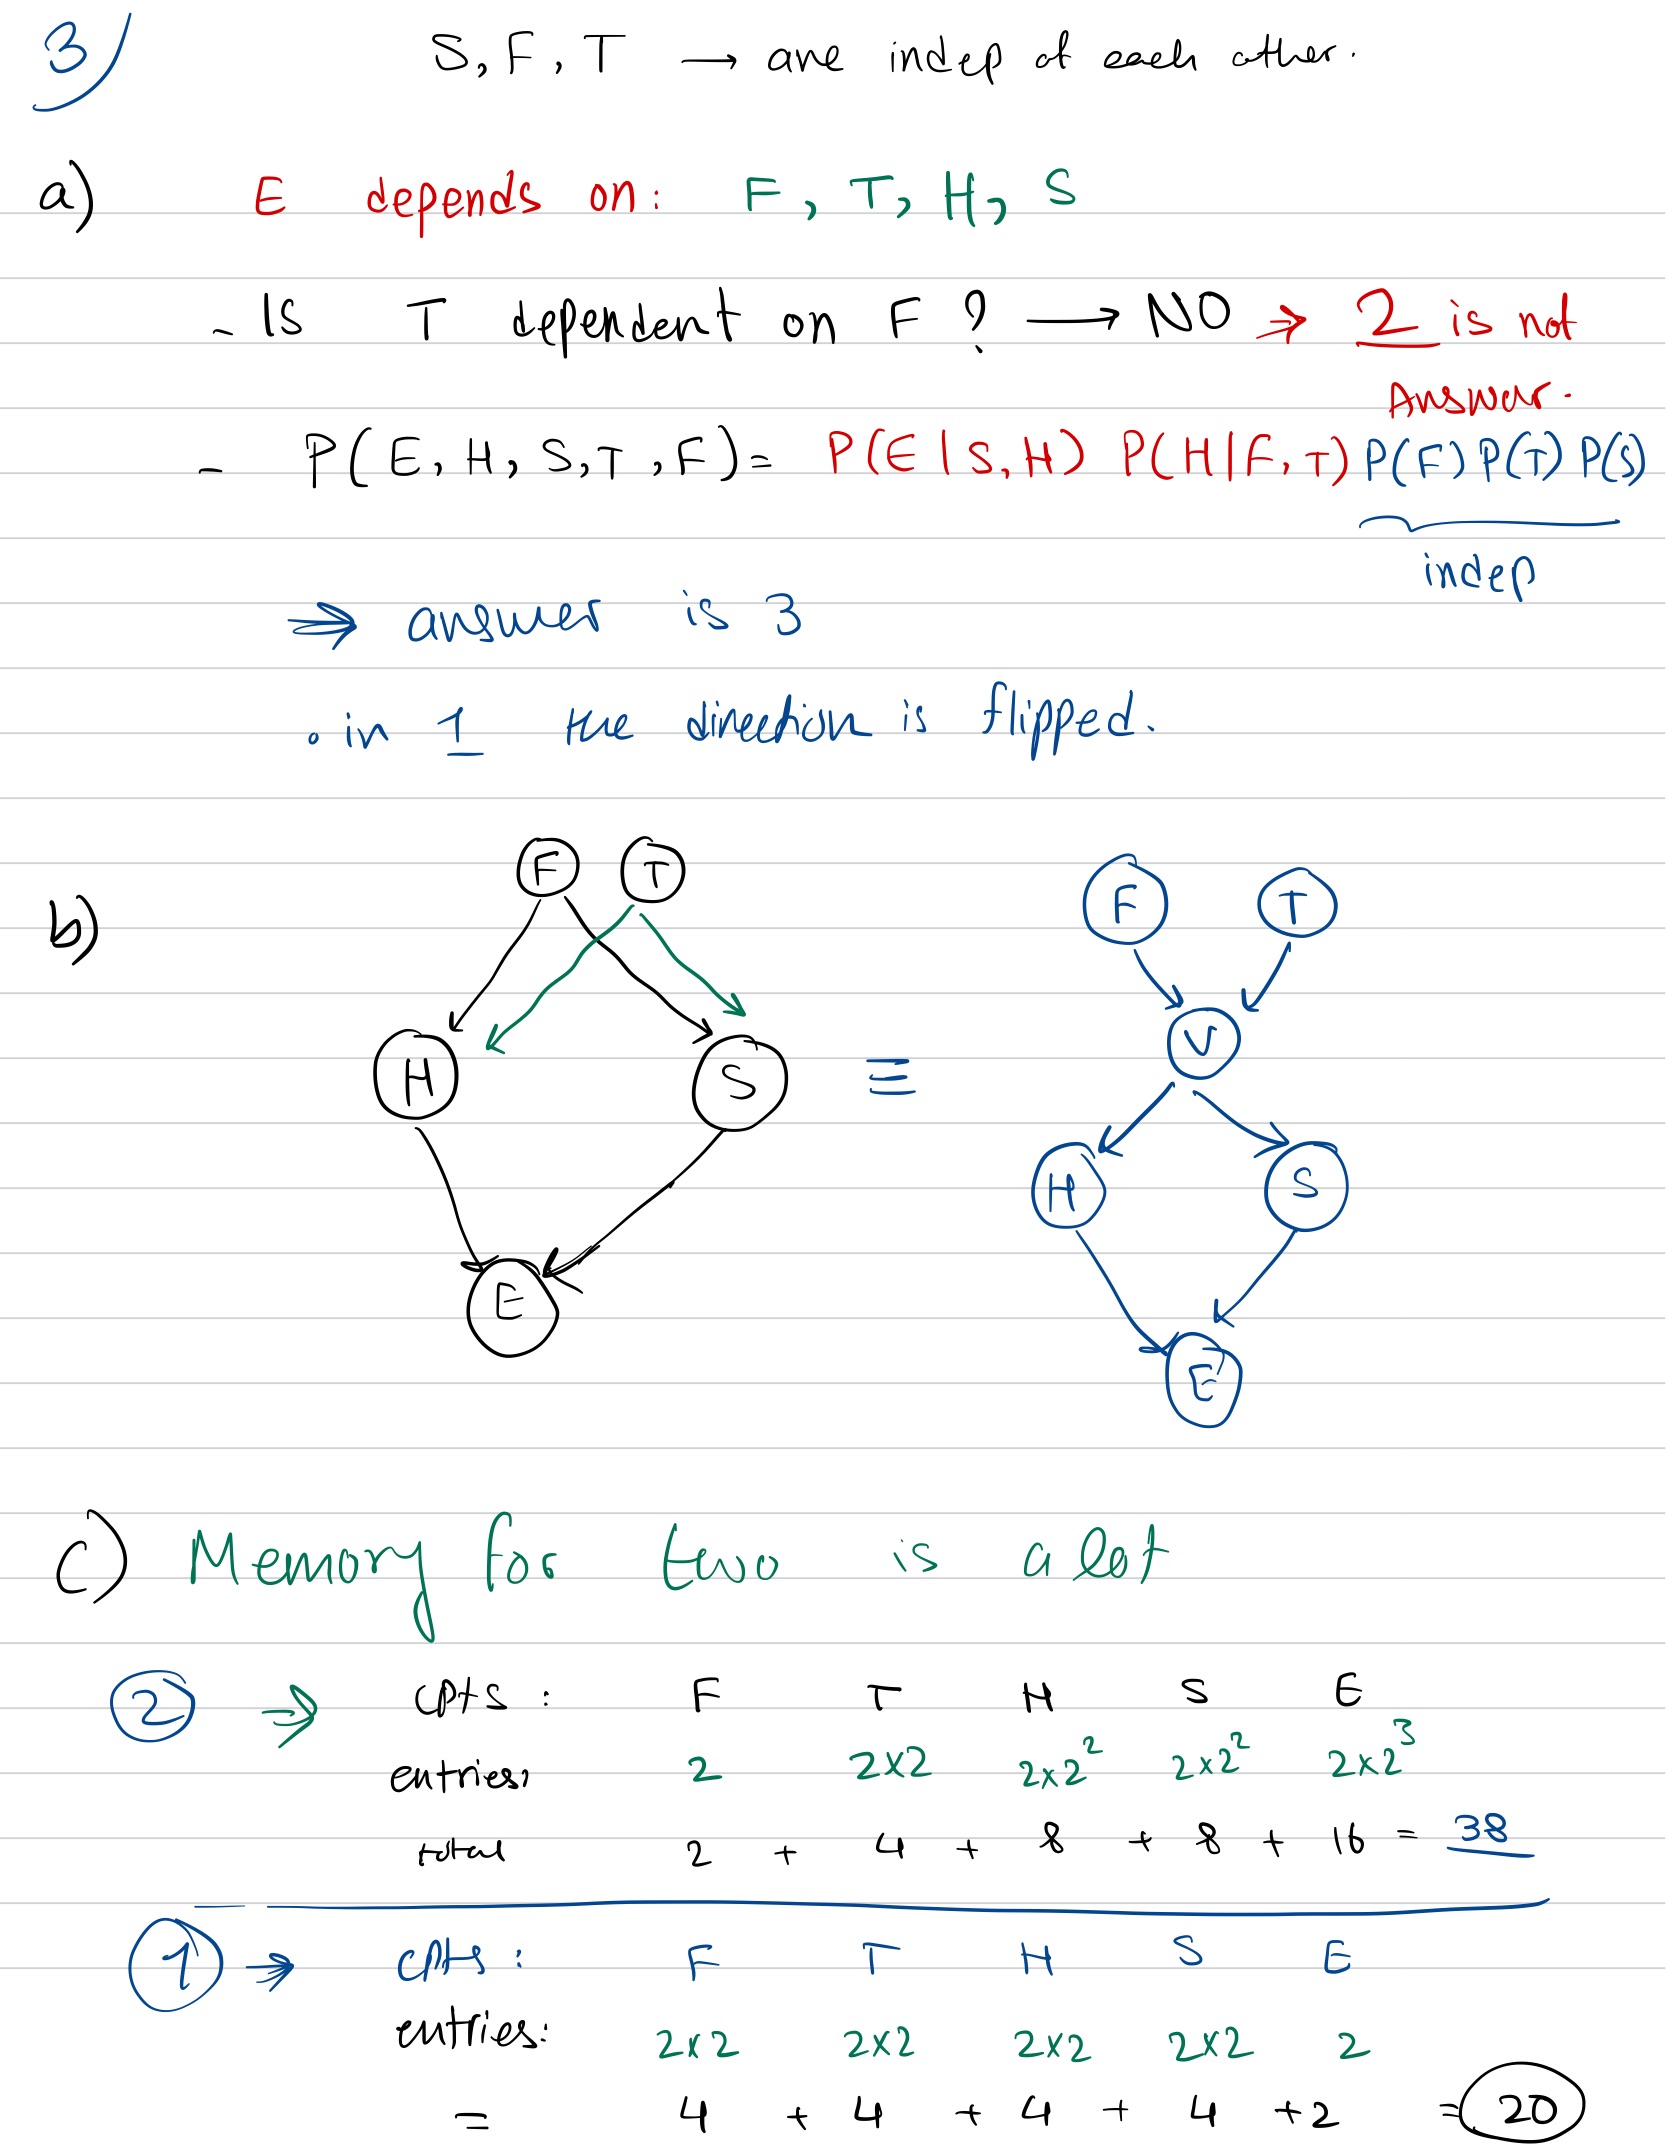 3)
S, F, T → are indep of each other.
a) E depends on: F, T, H, S
- Is T dependent on F ? → NO ⇒ 2 is not
Answer.
- P(E, H, S, T, F) = P(E|S, H) P(H|F, T) P(F) P(T) P(S)
indep
⇒ answer is 3
• in 1 the direction is flipped.
b)
F T
H S
E
≡
F T
V
H S
E
c) Memory for two is a lot
② ⇒ CPTs : F T H S E
entries: 2 2×2 2×2² 2×2² 2×2³
total 2 + 4 + 8 + 8 + 16 = 38
① ⇒ CPTs : F T H S E
entries: 2×2 2×2 2×2 2×2 2
= 4 + 4 + 4 + 4 + 2 = 20